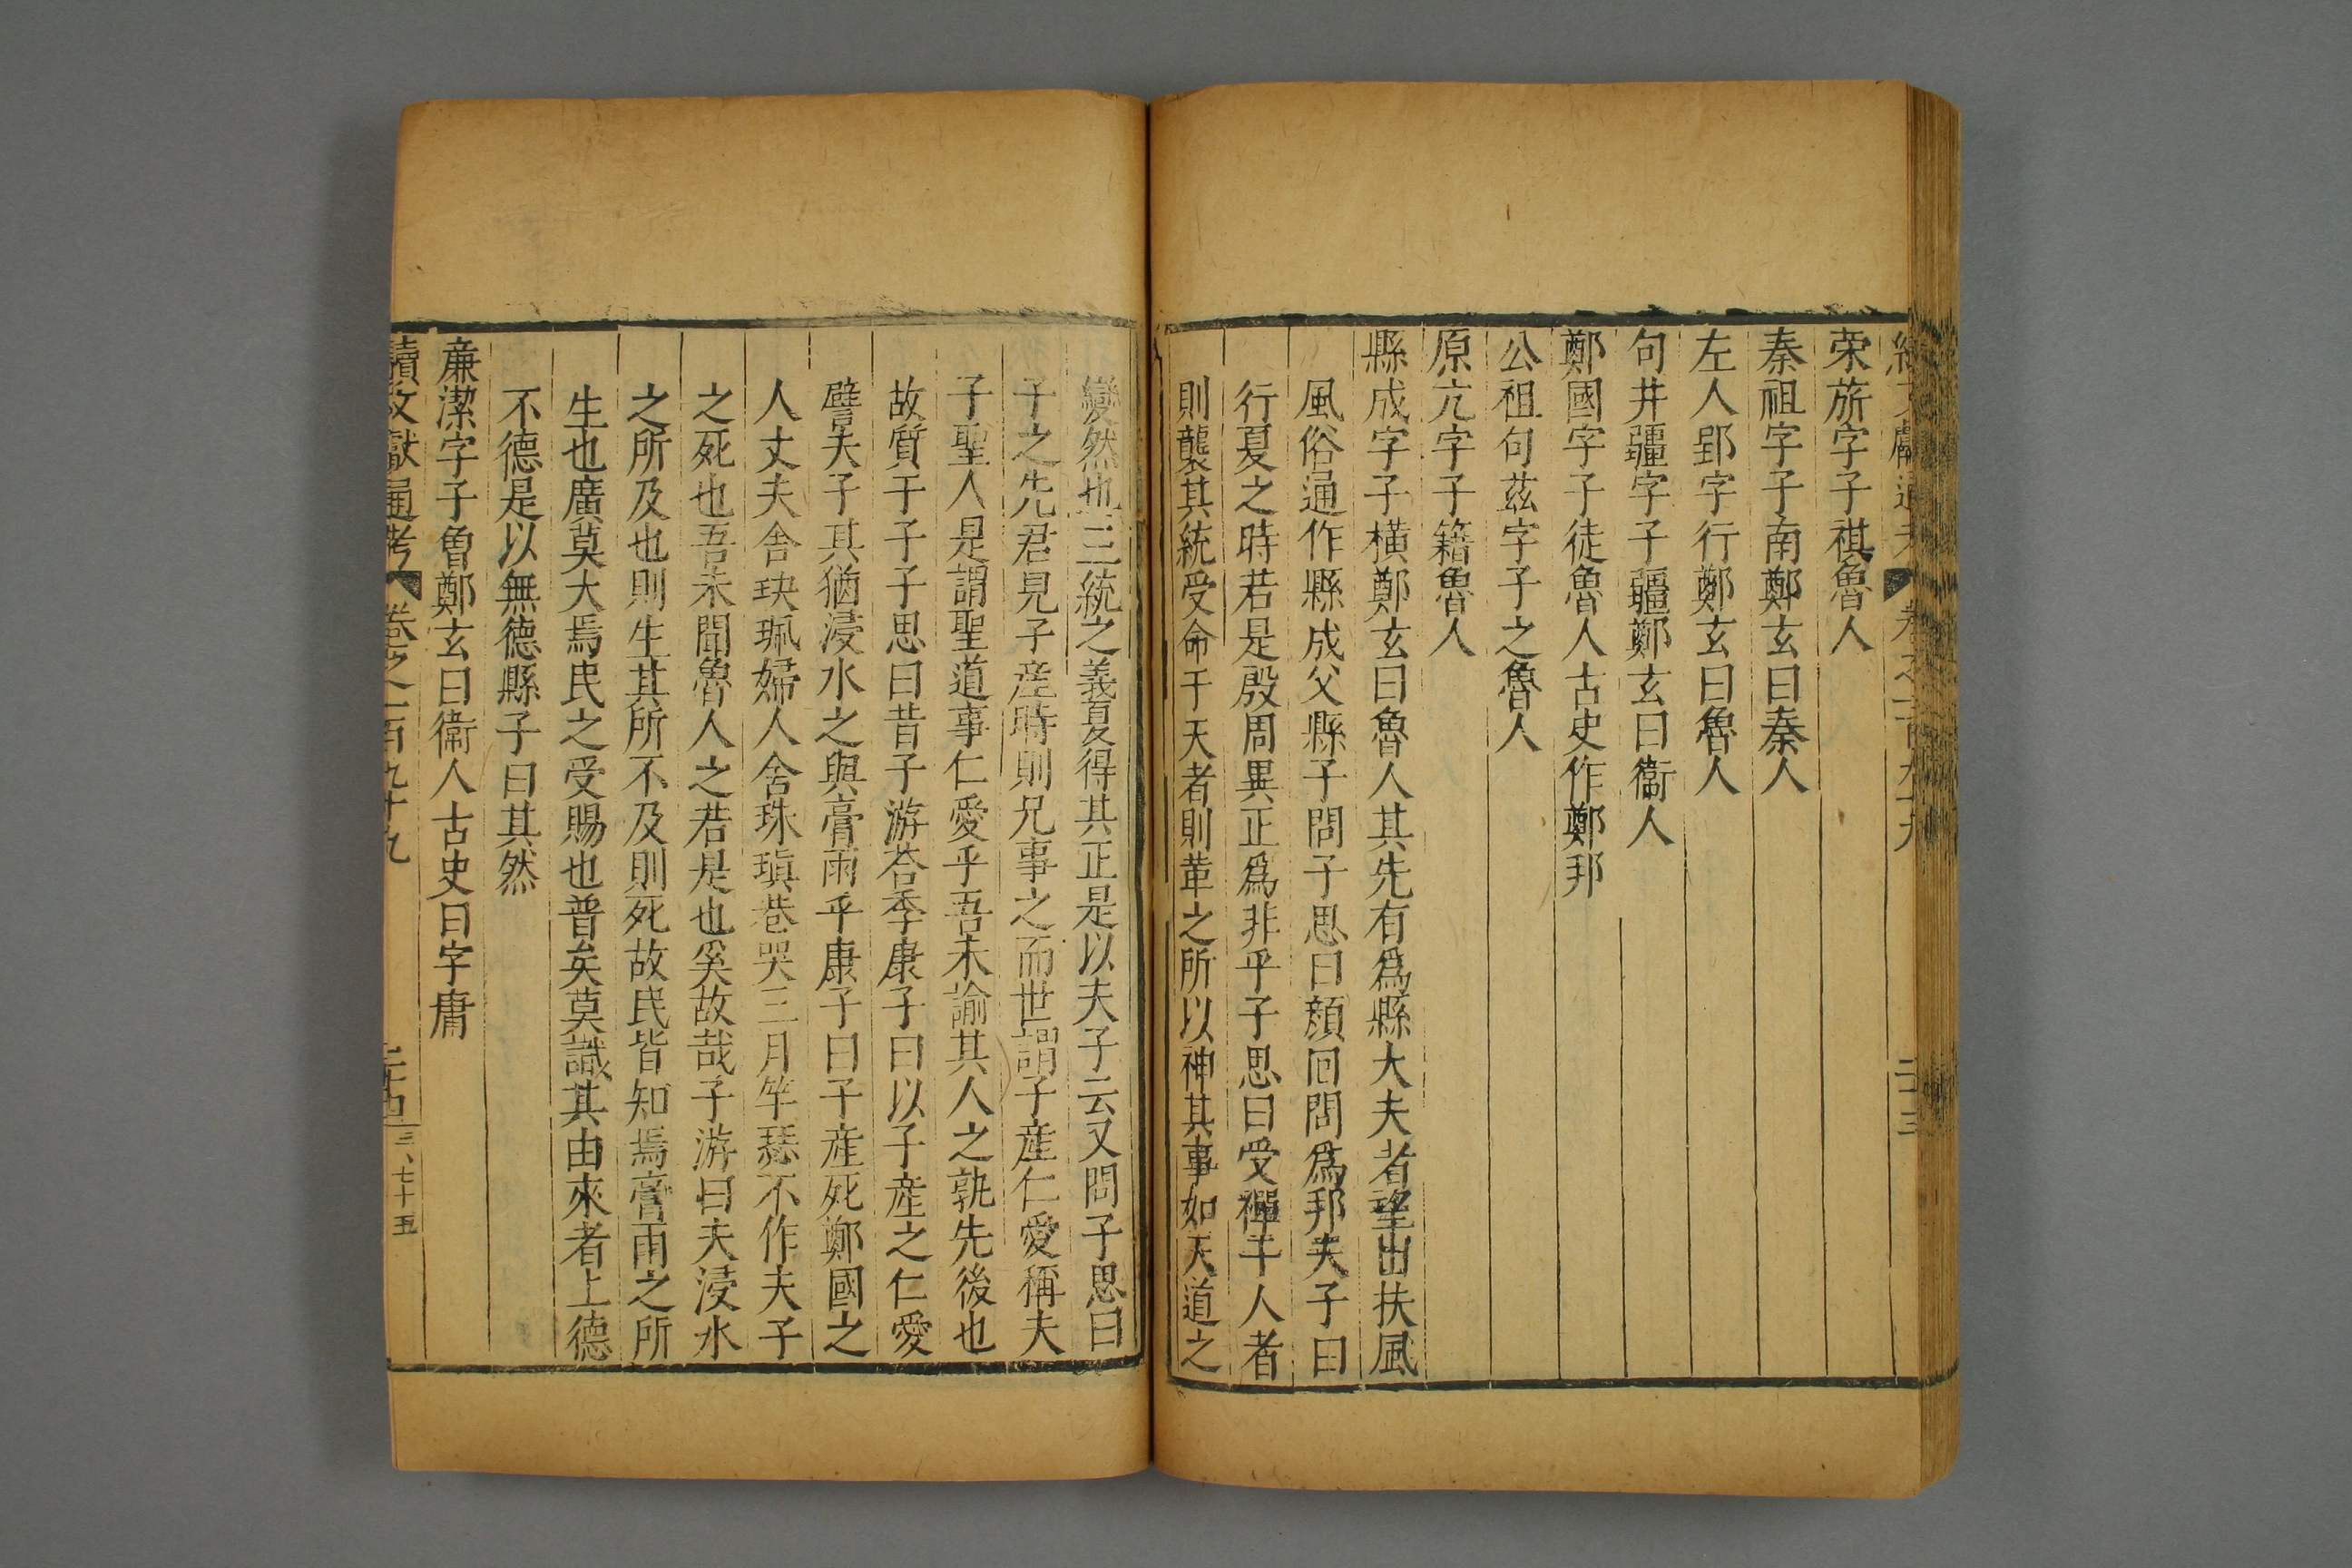 續文獻通考 卷之一百九十九 二十三
荣旂字子祺魯人
秦祖字子南鄭玄曰秦人
左人郢字行鄭玄曰魯人
句井疆字子疆鄭玄曰衞人
鄭國字子徒魯人古史作鄭邦
公祖句茲字子之魯人
原亢字子籍魯人
縣成字子橫鄭玄曰魯人其先有爲縣大夫者望出扶風
風俗通作縣成父縣子問子思曰顏回問爲邦夫子曰
行夏之時若是殷周異正爲非乎子思曰受禪于人者
則襲其統受命于天者則革之所以神其事如天道之
變然也三統之義夏得其正是以夫子云又問子思曰
子之先君見子産時則兄事之而世謂子産仁愛稱夫
子聖人是謂聖道事仁愛乎吾未諭其人之孰先後也
故質于子子思曰昔子游荅季康子曰以子産之仁愛
譬夫子其猶浸水之與膏雨乎康子曰子産死鄭國之
人丈夫舍玦珮婦人舍珠瑱巷哭三月竽瑟不作夫子
之死也吾未聞魯人之若是也奚故哉子游曰夫浸水
之所及也則生其所不及則死故民皆知焉膏雨之所
生也廣莫大焉民之受賜也普矣莫識其由來者上德
不德是以無德縣子曰其然
亷潔字子魯鄭玄曰衞人古史曰字庸
續文獻通考 卷之一百九十九 二十四 三、七十五